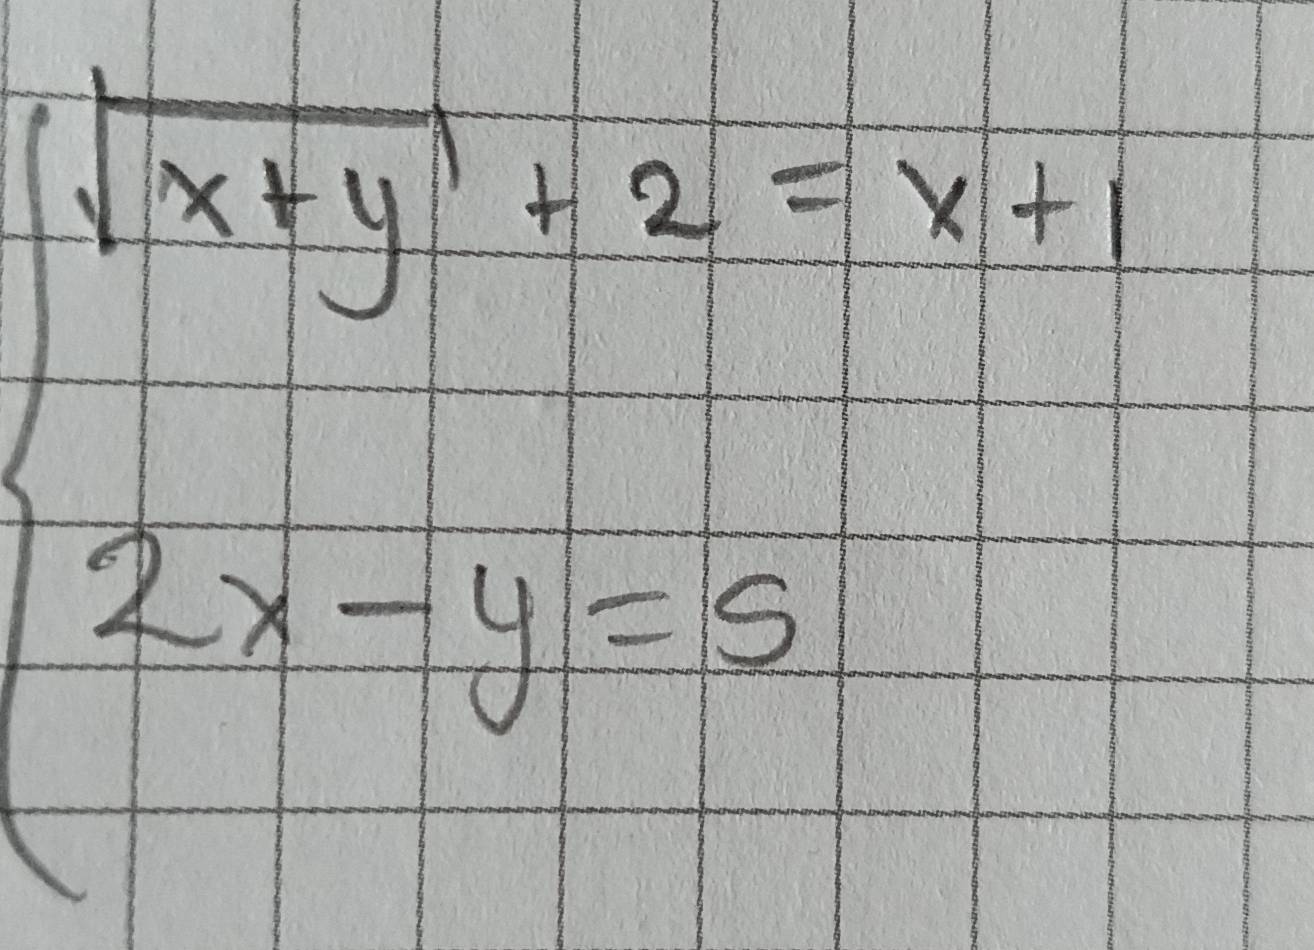 √(x+y) + 2 = x+1
2x - y = 5